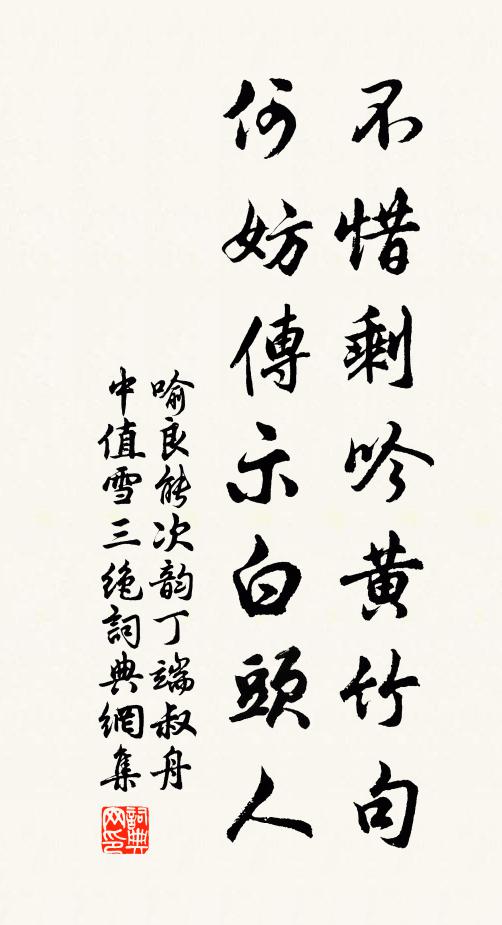 不惜剩吟黄竹句
何妨傳示白頭人
喻良能次韵丁端叔舟
中值雪三绝詞典網集
詞典網印